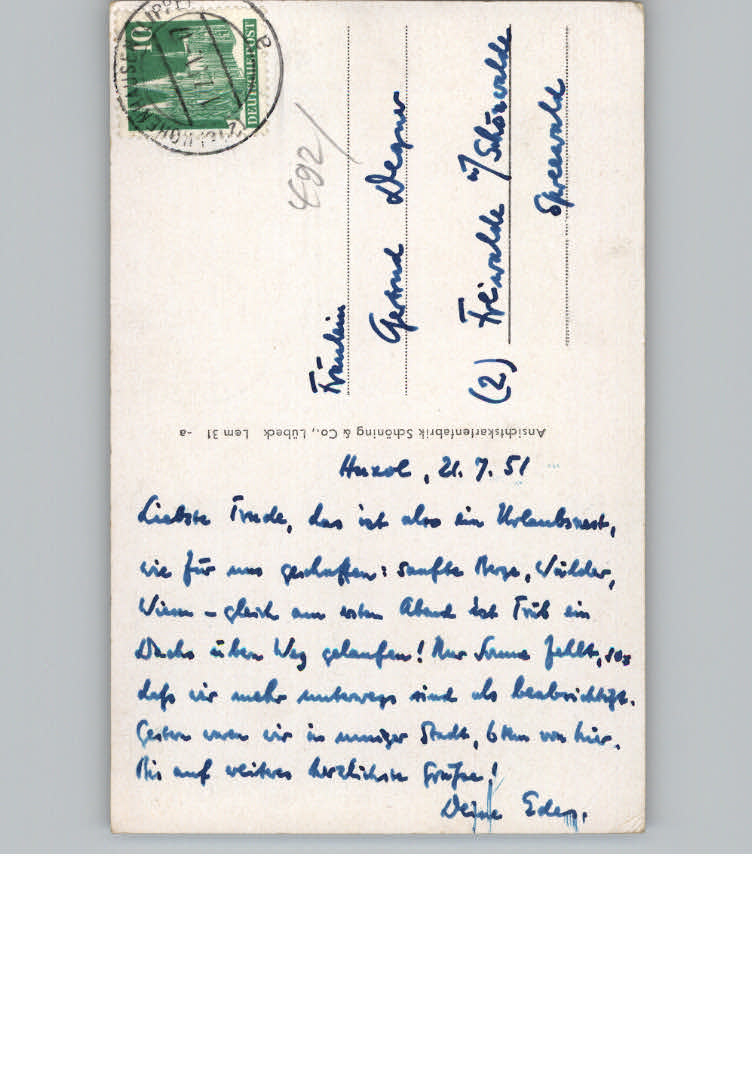 10
DEUTSCHE POST
492/
Fräulein
Gertrud Degner
(2) Freiwalde ü/Schönwalde
Spreewald
Ansichtskartenfabrik Schöning & Co., Lübeck Lem 31 -a
21. 7. 51
Liebste Trude, das ist also ein Urlaubsnest,
wie für uns geschaffen: sanfte Berge, Wälder,
Wiesen – gleich am ersten Abend ist ein
Dachs übern Weg gelaufen! Nur Sonne fehlt, sos
daß wir mehr unterwegs sind als beabsichtigt.
Gestern waren wir in Stadt, 6 km von hier.
Bis auf weiteres herzlichste Grüße!
Deine